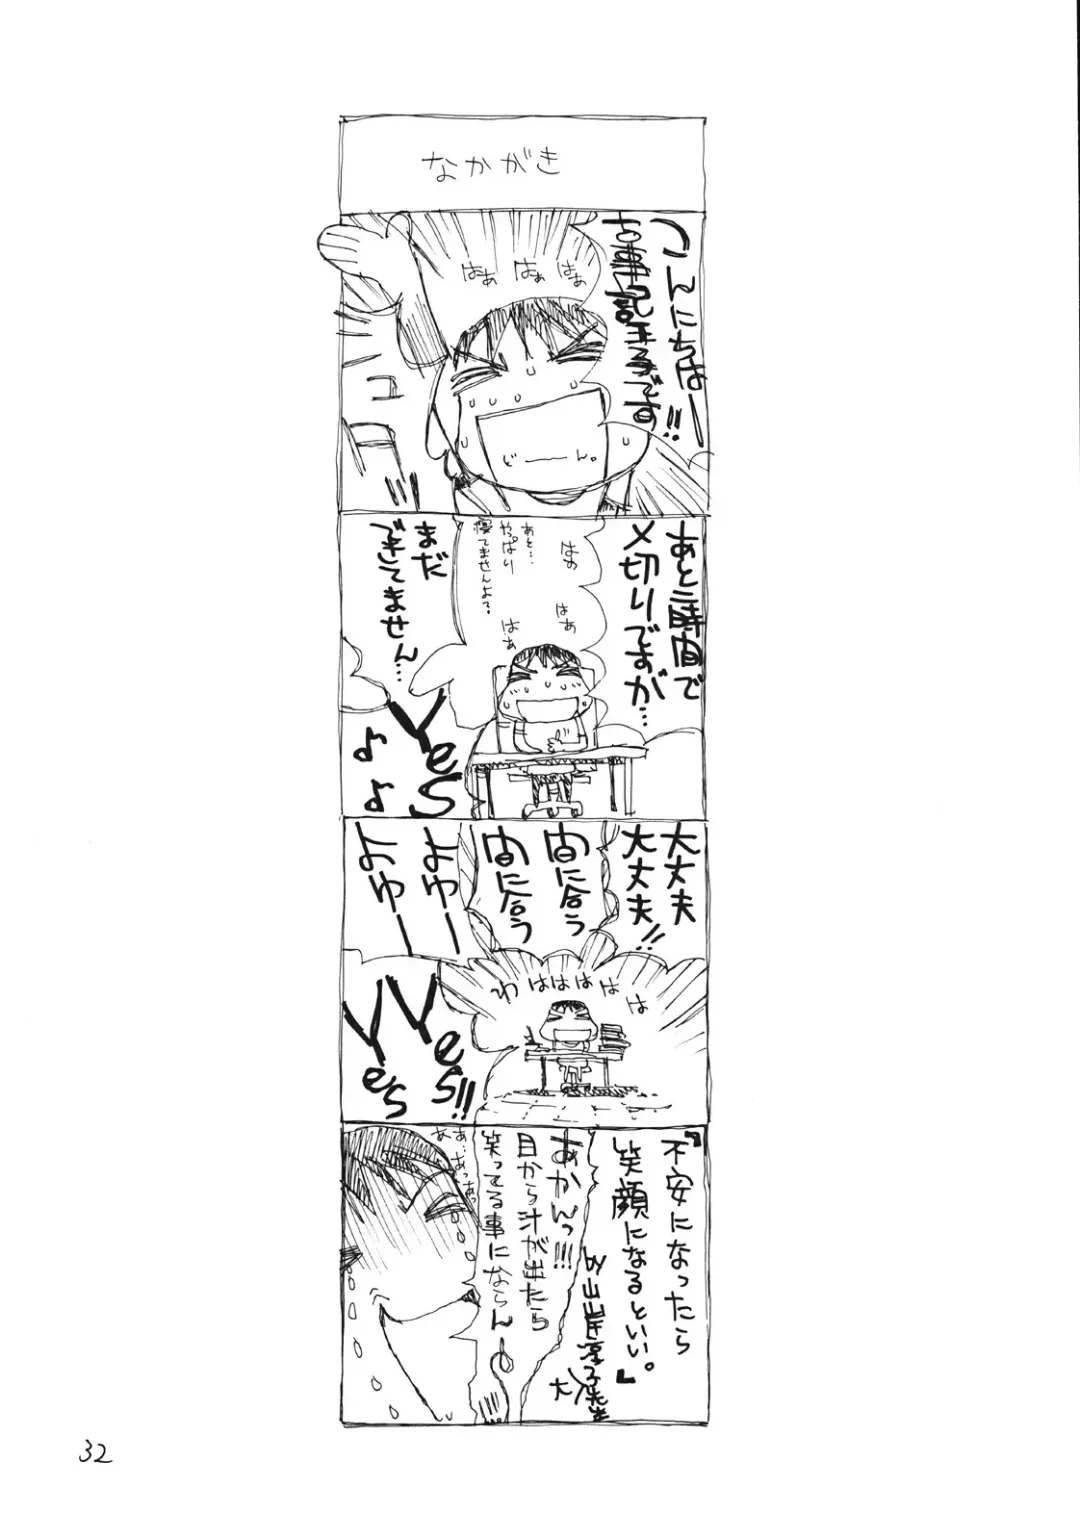 なかがき
こんにちはー!!
古事記王子です
はぁ
はぁ
はぁ
どーーん。
あと二時間で
〆切りですが…
はぁ
はぁ
はぁ
あと…
やっぱり
寝てませんよ?
まだ
できてません…
Yes
♪
♪
大丈夫
大丈夫!!
間に合う
間に合う
よゆー
よゆー
わははははは
Yes!!
Yes
『不安になったら
笑顔になるといい。』
by山岸淳子先生
大
あかんっ!!!
目から汁が出たら
笑ってる事にならん
あぁ…あっあっ
あ
32